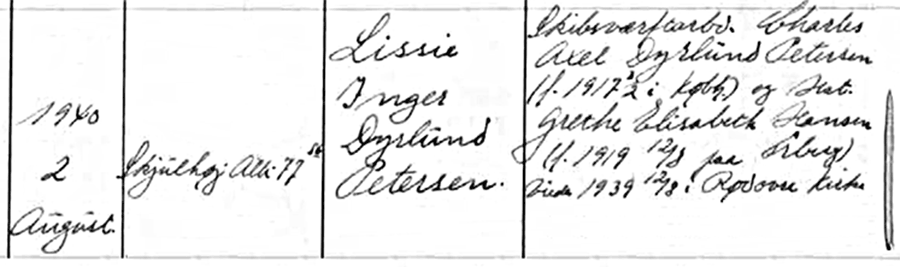 1940
2
August.
Skjulhøj Alle. 77 st
Lissie
Inger
Dyrlund
Petersen.
Skibsværftarb. Charles
Axel Dyrlund Petersen
(f. 1917 i Kbh.) og Hust.
Grethe Elisabeth Hansen
(f. 1919 12/8 paa)
Viede 1939 12/8 i Rødovre Kirke